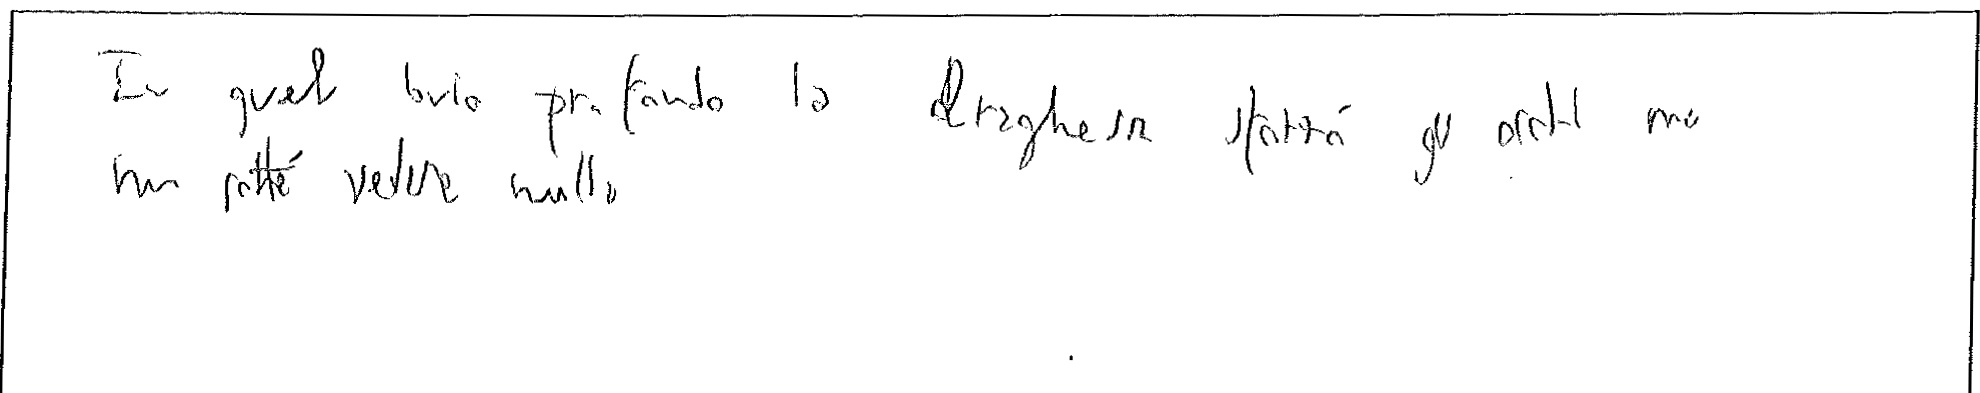 In quel buio profondo la draghessa sforzò gli occhi ma
non potté vedere nulla